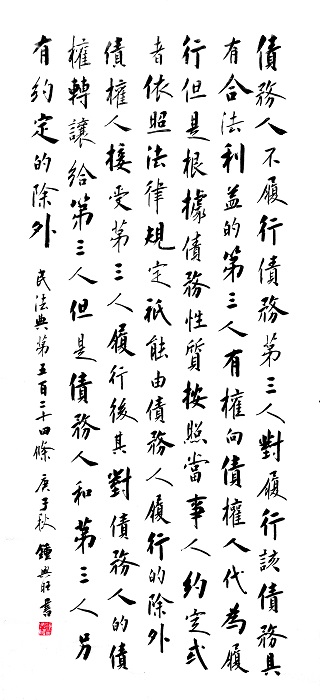 債務人不履行債務第三人對履行該債務具
有合法利益的第三人有權向債權人代為履
行但是根據債務性質按照當事人約定或
者依照法律規定祇能由債務人履行的除外
債權人接受第三人履行後其對債務人的債
權轉讓給第三人但是債務人和第三人另
有約定的除外
民法典第五百二十四條 庚子秋 鍾興旺書